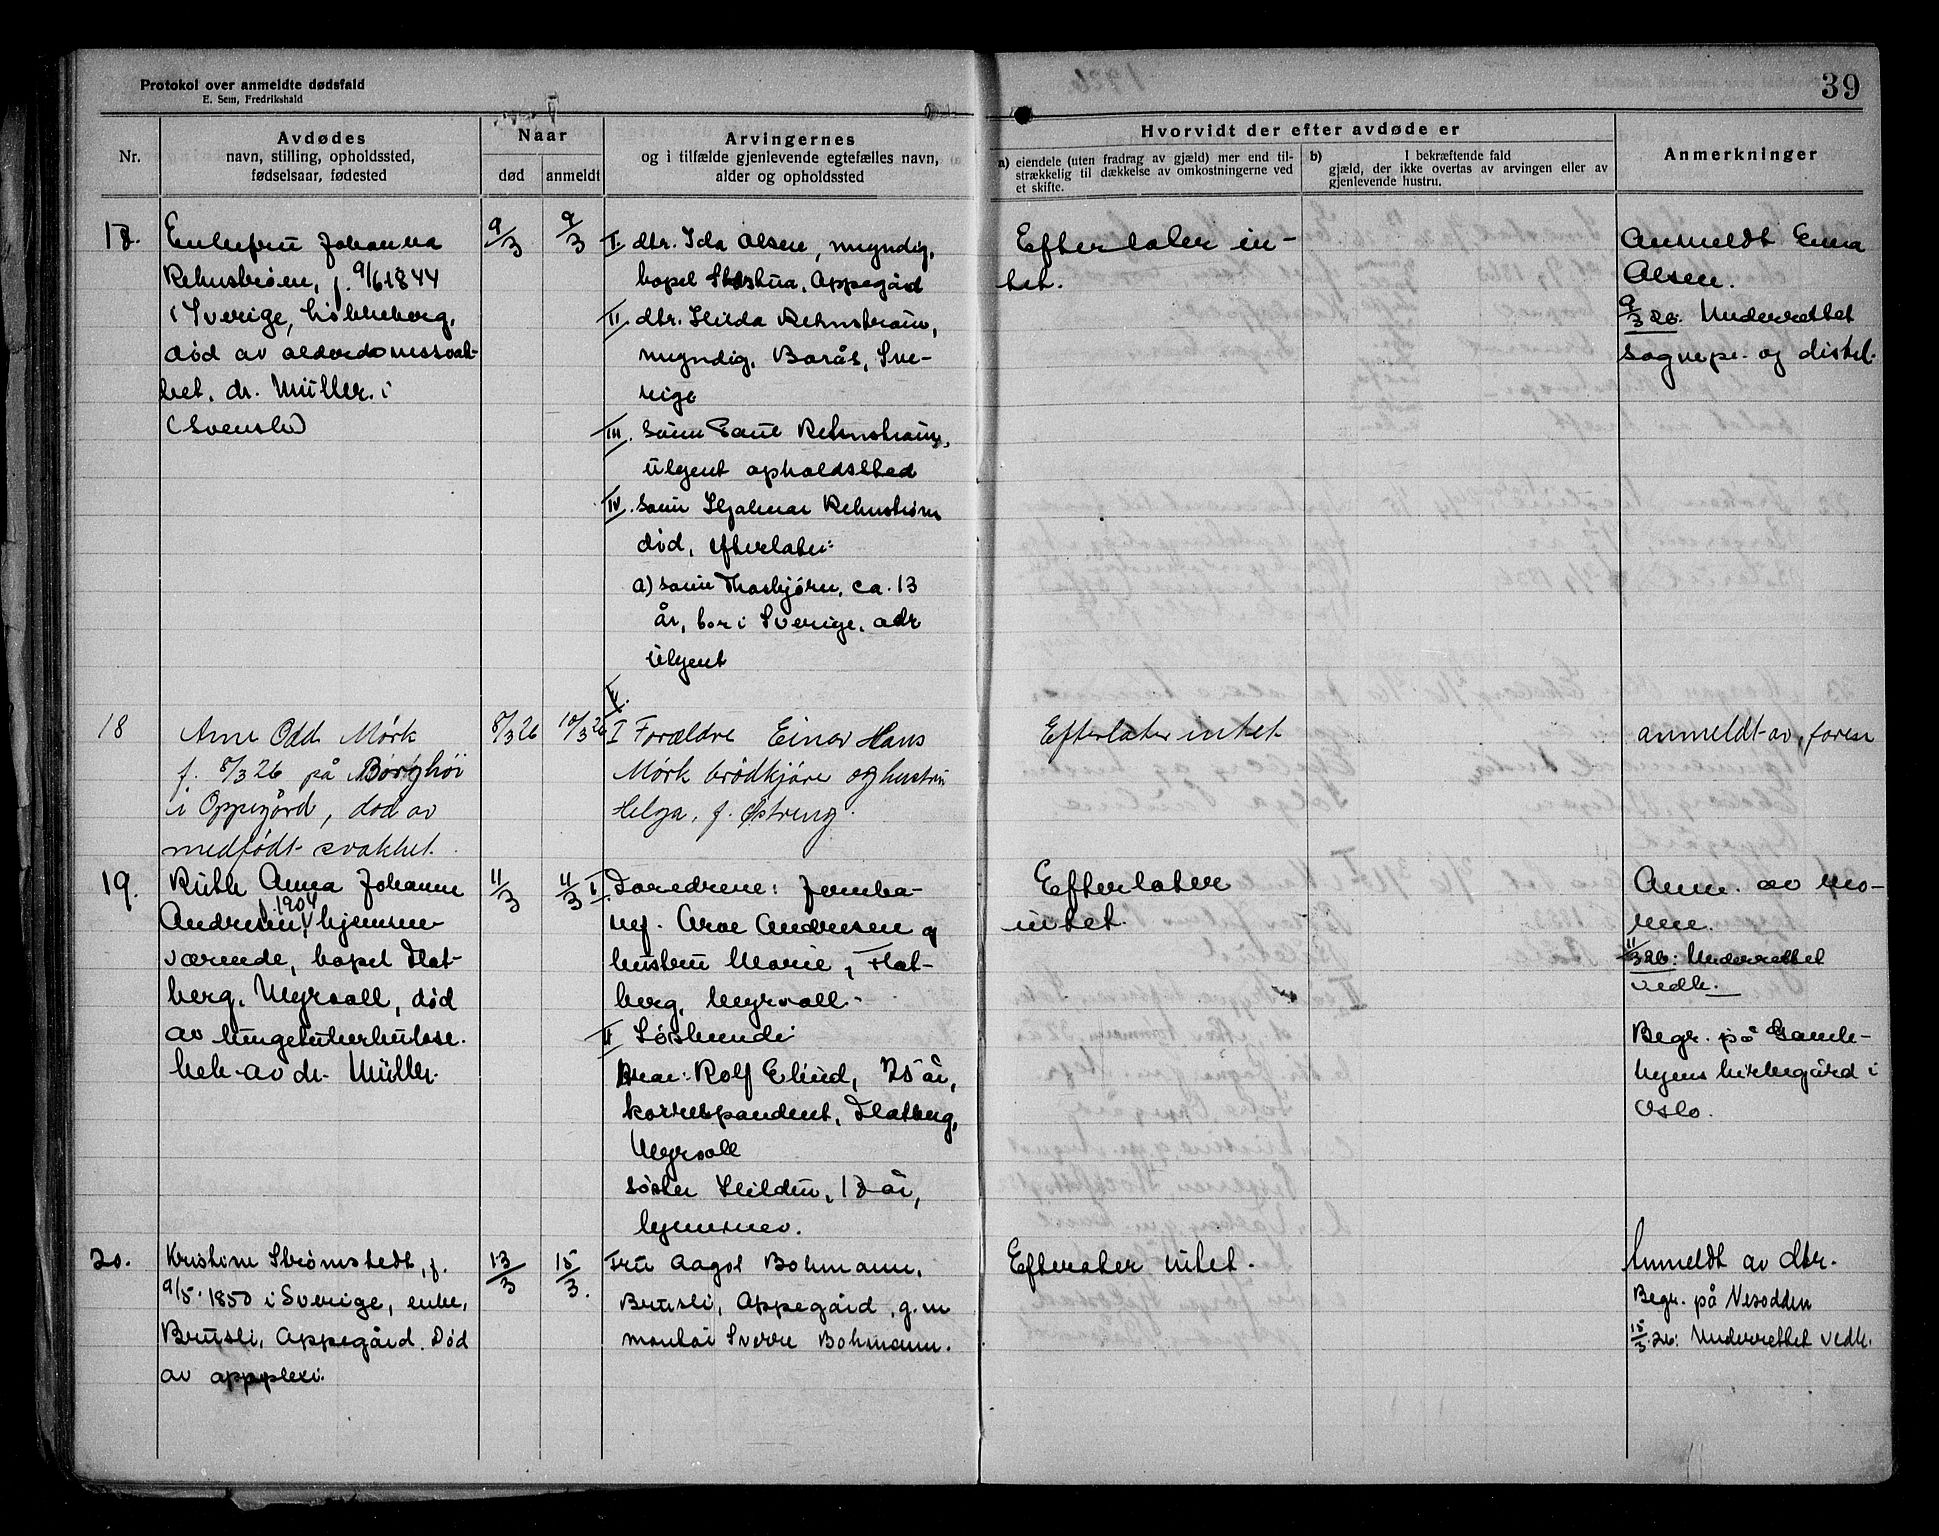 Protokol over anmeldte dødsfald
E. Sem, Fredrikshald
39
Nr.
Avdødes
navn, stilling, opholdssted,
fødselsaar, fødested
Naar
død
anmeldt
Arvingernes
og i tilfælde gjenlevende egtefælles navn,
alder og opholdssted
Hvorvidt der efter avdøde er
a) eiendele (uten fradrag av gjæld) mer end til-
strækkelig til dækkelse av omkostningerne ved
et skifte.
b) I bekræftende fald
gjæld, der ikke overtas av arvingen eller av
gjenlevende hustru.
Anmerkninger
17.
Enkefru Johanna
f. 9/6 1844
i Sverige,
død av alderdomssvak-
het, dr. Müller. i
(svensk)
9/3
9/3
I. dtr. Ida Olsen, myndig,
bopel Oppegård
II. dtr. Hilda Rehnstrøm,
myndig, Borås, Sve-
rige
III. sønn Rehnstrøm,
ukjent opholdssted
IV. sønn Hjalmar Rehnstrøm
død, efterlater:
a) sønn Thorbjørn, ca. 13
år, bor i Sverige, adr
ukjent
V.
Efterlater in-
tet.
Anmeldt Enna
Olsen.
9/3 26. Underrettet
sognepr. og distel.
18
Arne Odd Mørk
f. 8/3 26 på Borghöi
i Oppegård, død av
medfødt svakhet.
8/3 26
10/3 26
I Forældre Einar Hans
Mørk brödkjöre og hustru
Helga, f. Østreng.
Efterlater intet
anmeldt av faren
19.
Ruth Anna Johanne
Andresen, f. 1904 hjemme-
værende, bopel Flat-
berg, Myrvoll, død
av lungetuberkulose.
beh. av dr. Müller.
11/3
11/3
I. Foreldrene: Jernba-
nef. Arve Andresen og
hustru Marie, Flat-
berg, Myrvoll.
II Søskende:
Bror: Rolf Elind, 25 år,
korrespondent, Flatberg,
Myrvoll
søster Hildur, 17 år,
hjemmev.
Efterlater
intet.
Anm. av mo-
ren.
11/3 26: Underrettet
vedk.
Begr. på Gamle-
byens kirkegård i
Oslo.
20.
Kristine Strømstedt, f.
9/5. 1850 i Sverige, enke,
Brusli, Oppegård. Død
av apoplexi.
13/3
15/3.
Fru Aagot Bohmann,
Brusli, Oppegård, g.m
montør Sverre Bohmann.
Efterlater intet.
Anmeldt av dtr.
Begr. på Nesodden
15/3. 26: Underrettet vedk.